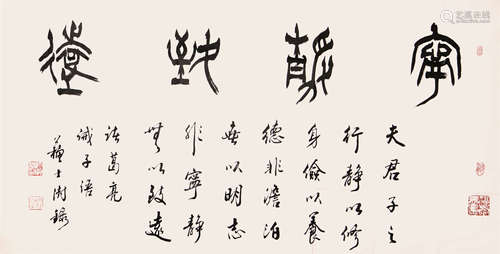 寧靜致遠
夫君子之
行靜以修
身儉以養
德非澹泊
無以明志
非寧靜
無以致遠
諸葛亮
誡子語
蘇士澍錄